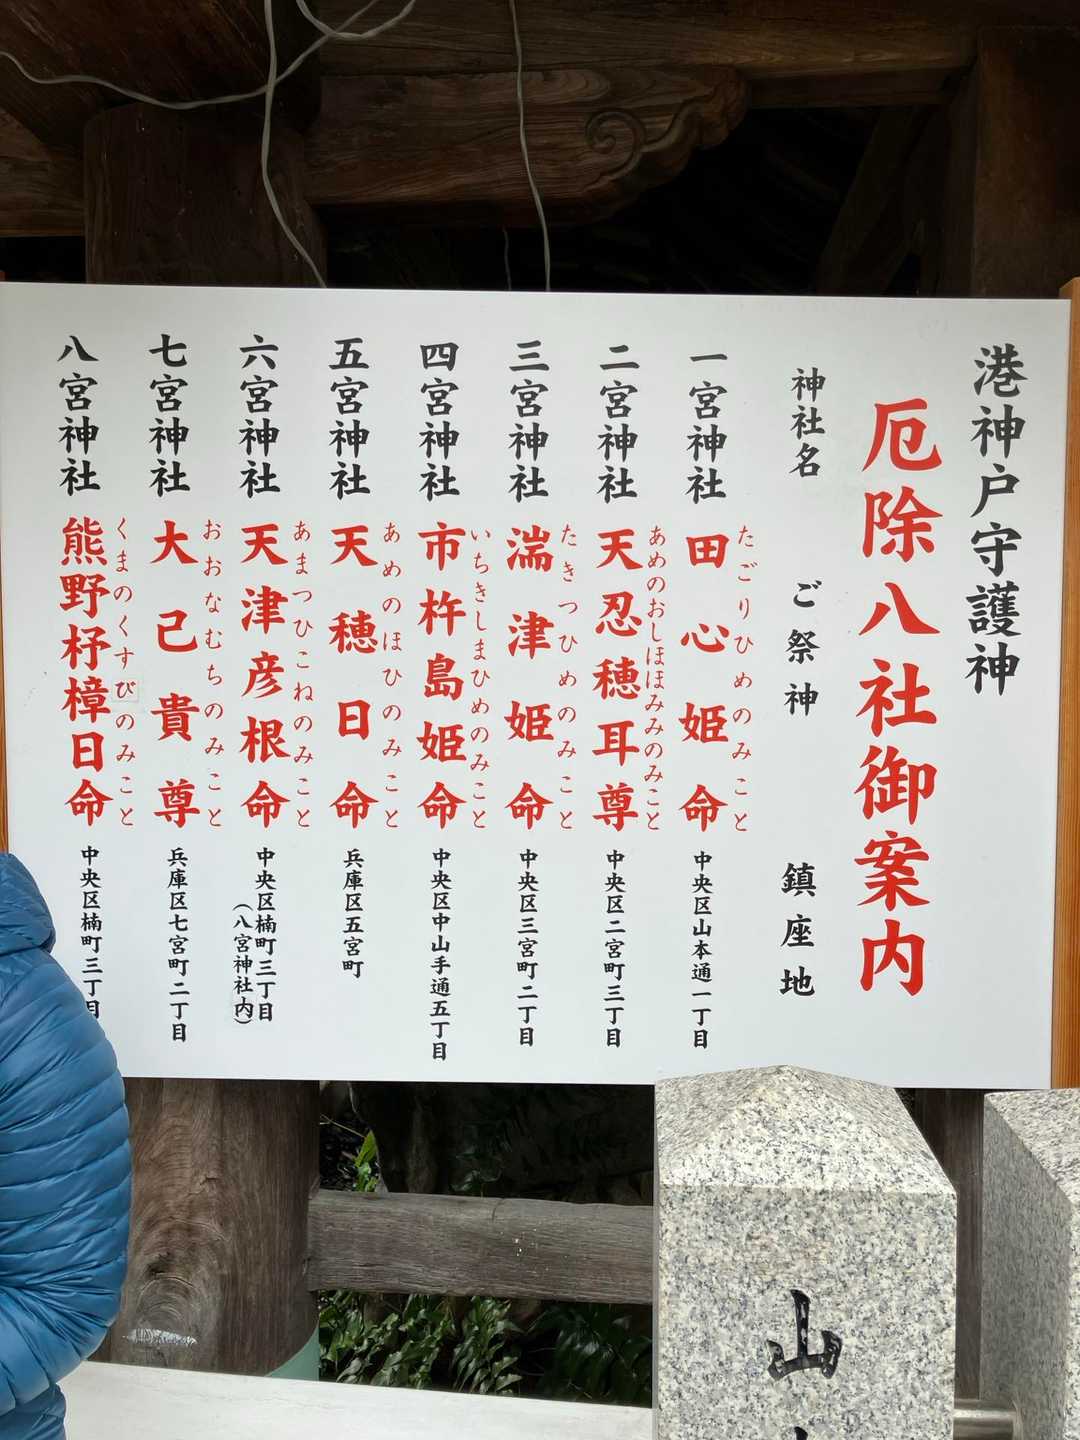 港神戸守護神
厄除八社御案内
神社名 ご祭神 鎮座地
一宮神社 田心姫命 中央区山本通一丁目
たごりひめのみこと
二宮神社 天忍穂耳尊 中央区二宮町三丁目
あめのおしほほみみのみこと
三宮神社 湍津姫命 中央区三宮町二丁目
たきつひめのみこと
四宮神社 市杵島姫命 中央区中山手通五丁目
いちきしまひめのみこと
五宮神社 天穂日命 兵庫区五宮町
あめのほひのみこと
六宮神社 天津彦根命 中央区楠町三丁目
あまつひこねのみこと
(八宮神社内)
七宮神社 大己貴尊 兵庫区七宮町二丁目
おおなむちのみこと
八宮神社 熊野杼樟日命 中央区楠町三丁目
くまのくすびのみこと
山